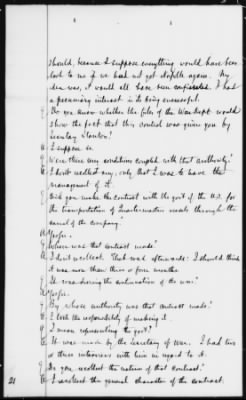 should, because I suppose everything would have been
lost to me if we had not North again. My
idea was, it would all have been confiscated. I had
a pecuniary interest in its being successful.
Q. Do you know whether the files of the War Dept would
show the fact that this control was given you by
Secretary Stanton?
A. I suppose so.
Q. Were there any conditions coupled with that authority?
A. I don't recollect any, only that I was to have the
management of it.
Q. Did you make the contract with the govt of the U.S. for
the transportation of Quartermaster's goods through the
canal of the company?
A. Yes sir.
Q. When was that contract made?
A. I don't recollect. That was afterwards. I should think
it was more than three or four months.
It was during the continuation of the war?
A. Yes sir.
Q. By whose authority was that contract made?
A. I took the responsibility of making it.
Q. I mean representing the govt?
A. It was made by the Secretary of War. I had two
or three interviews with him in regard to it.
Q. Do you recollect the nature of that contract?
A. I recollect the general character of the contract.
21